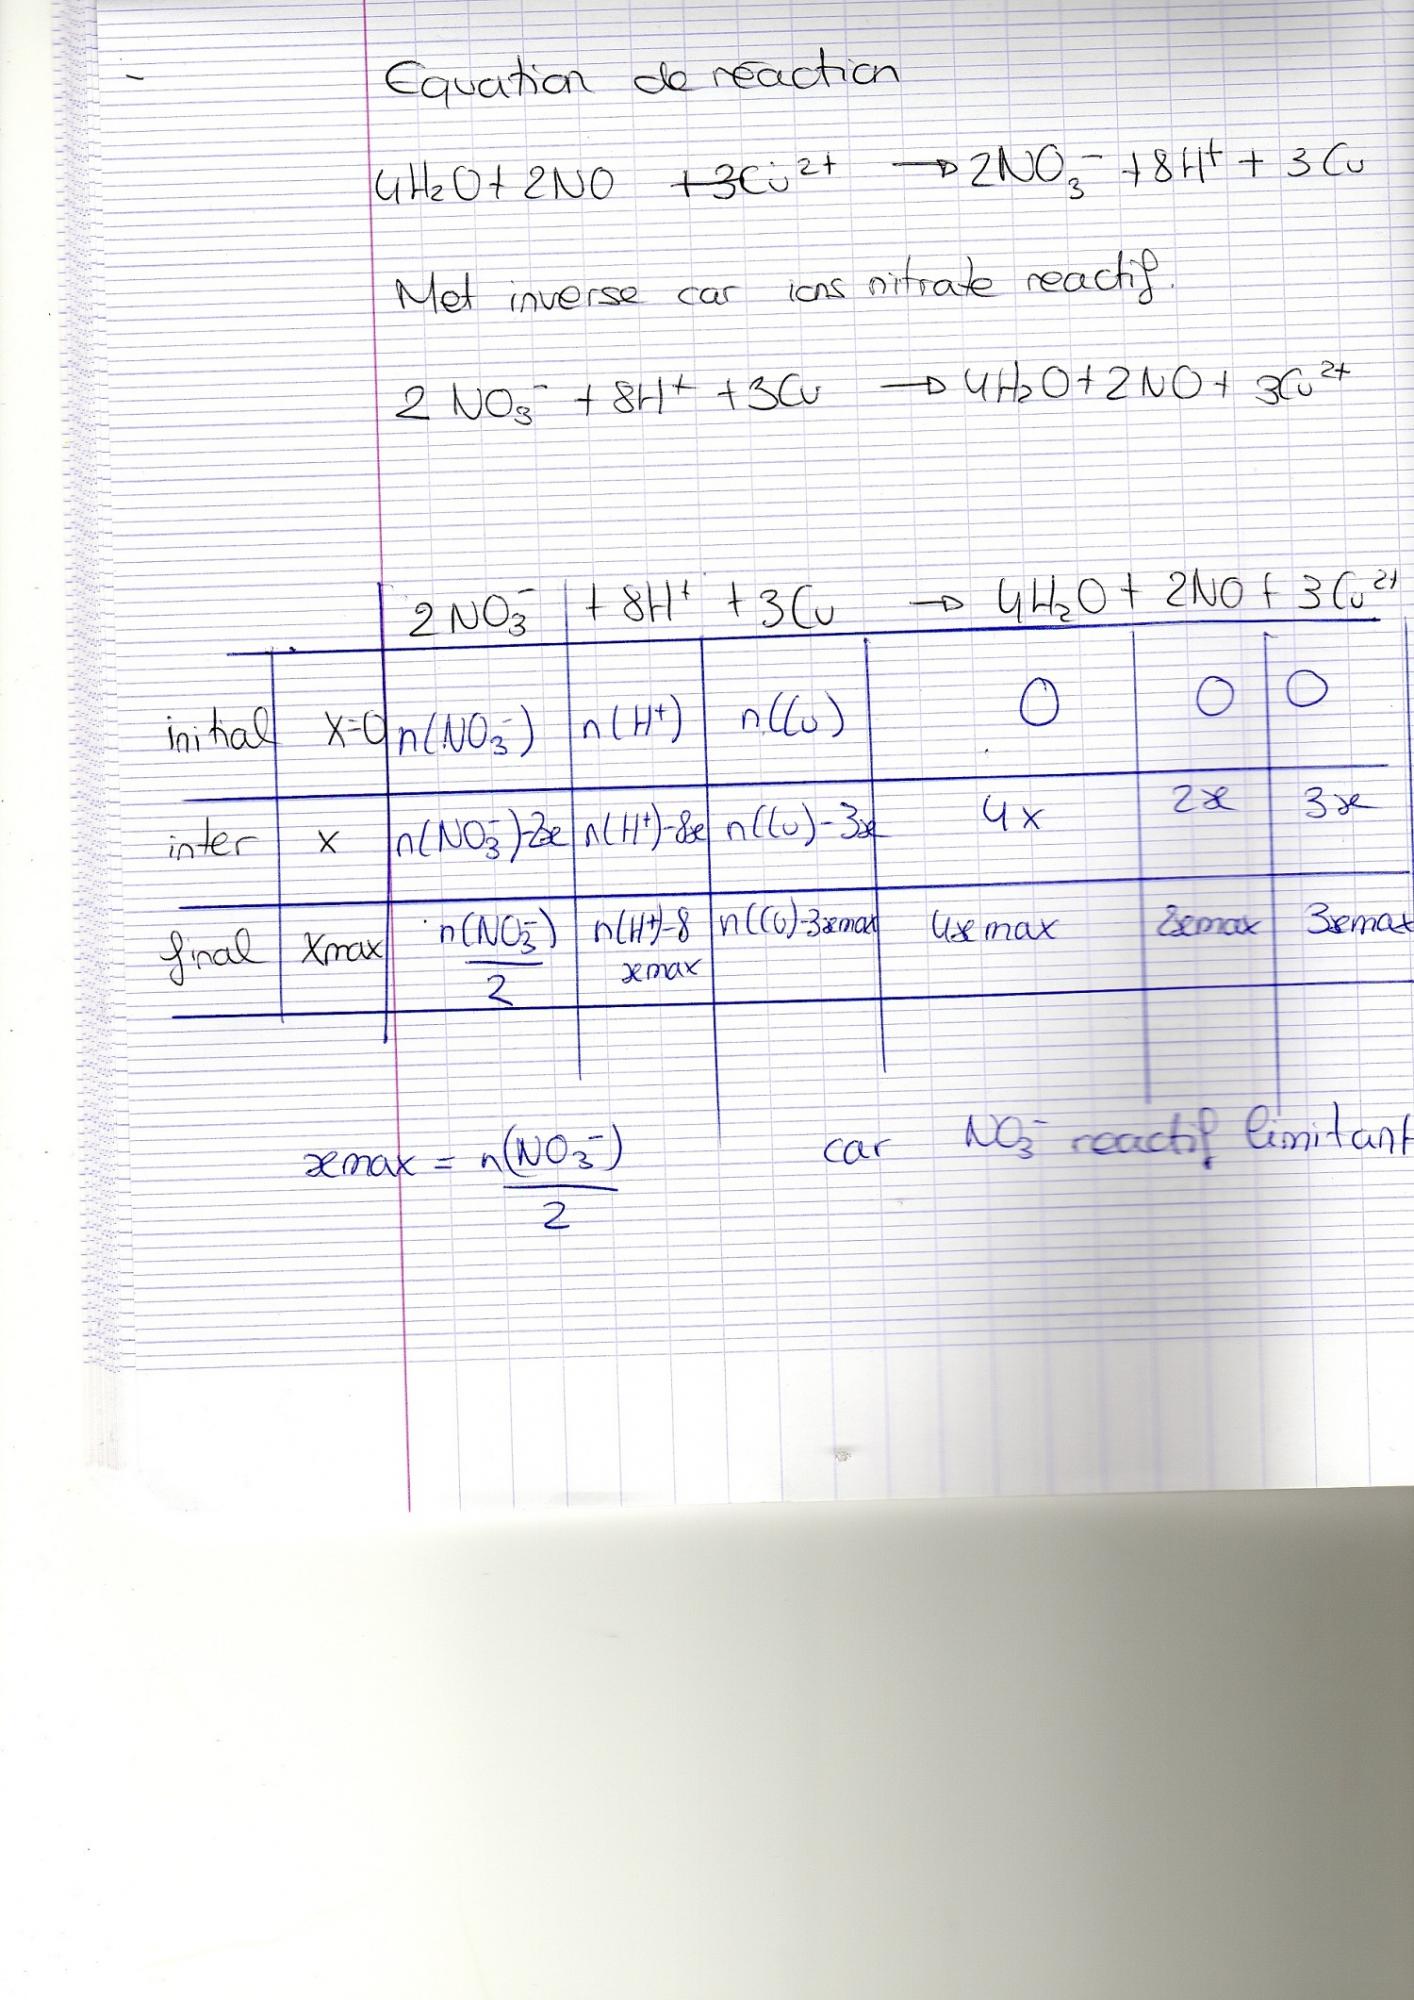 Equation de réaction
4H₂O + 2NO + 3Cu²⁺ → 2NO₃⁻ + 8H⁺ + 3Cu
Met inverse car ions nitrate reactif.
2 NO₃⁻ + 8H⁺ + 3Cu → 4H₂O + 2NO + 3Cu²⁺
2NO₃⁻ + 8H⁺ + 3Cu → 4H₂O + 2NO + 3Cu²⁺
initial x=0 n(NO₃⁻) n(H⁺) n(Cu) 0 0 0
inter x n(NO₃⁻)-2x n(H⁺)-8x n(Cu)-3x 4x 2x 3x
final Xmax n(NO₃⁻)/2 n(H⁺)-8 xmax n(Cu)-3xmax 4xmax 2xmax 3xmax
xmax = n(NO₃⁻)/2 car NO₃⁻ reactif limitant